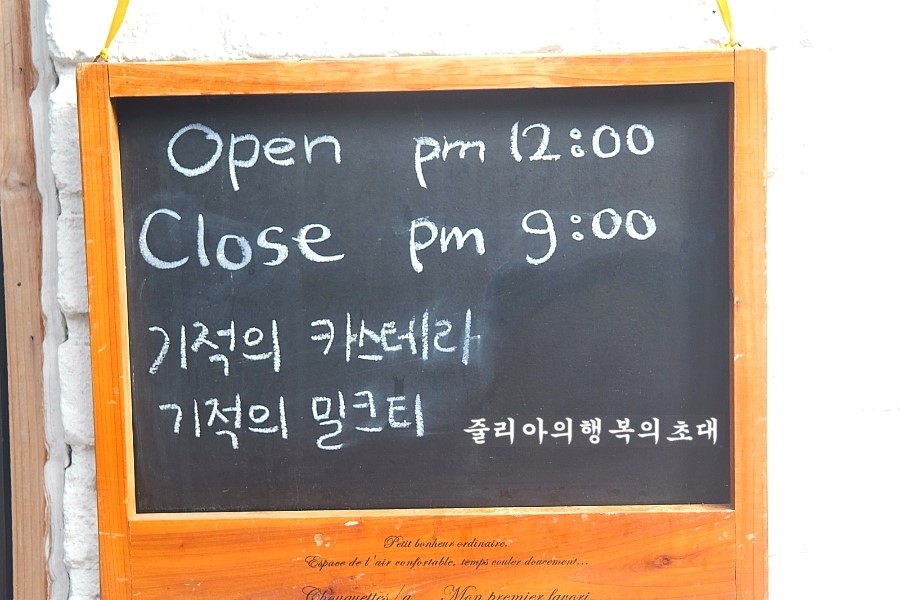 Open pm 12:00
Close pm 9:00
기적의 카스테라
기적의 밀크티
줄리아의행복의초대
Petit bonheur ordinaire.
Espace de l'air confortable, temps couler doucement...
Chouquettes/a Mon premier favori